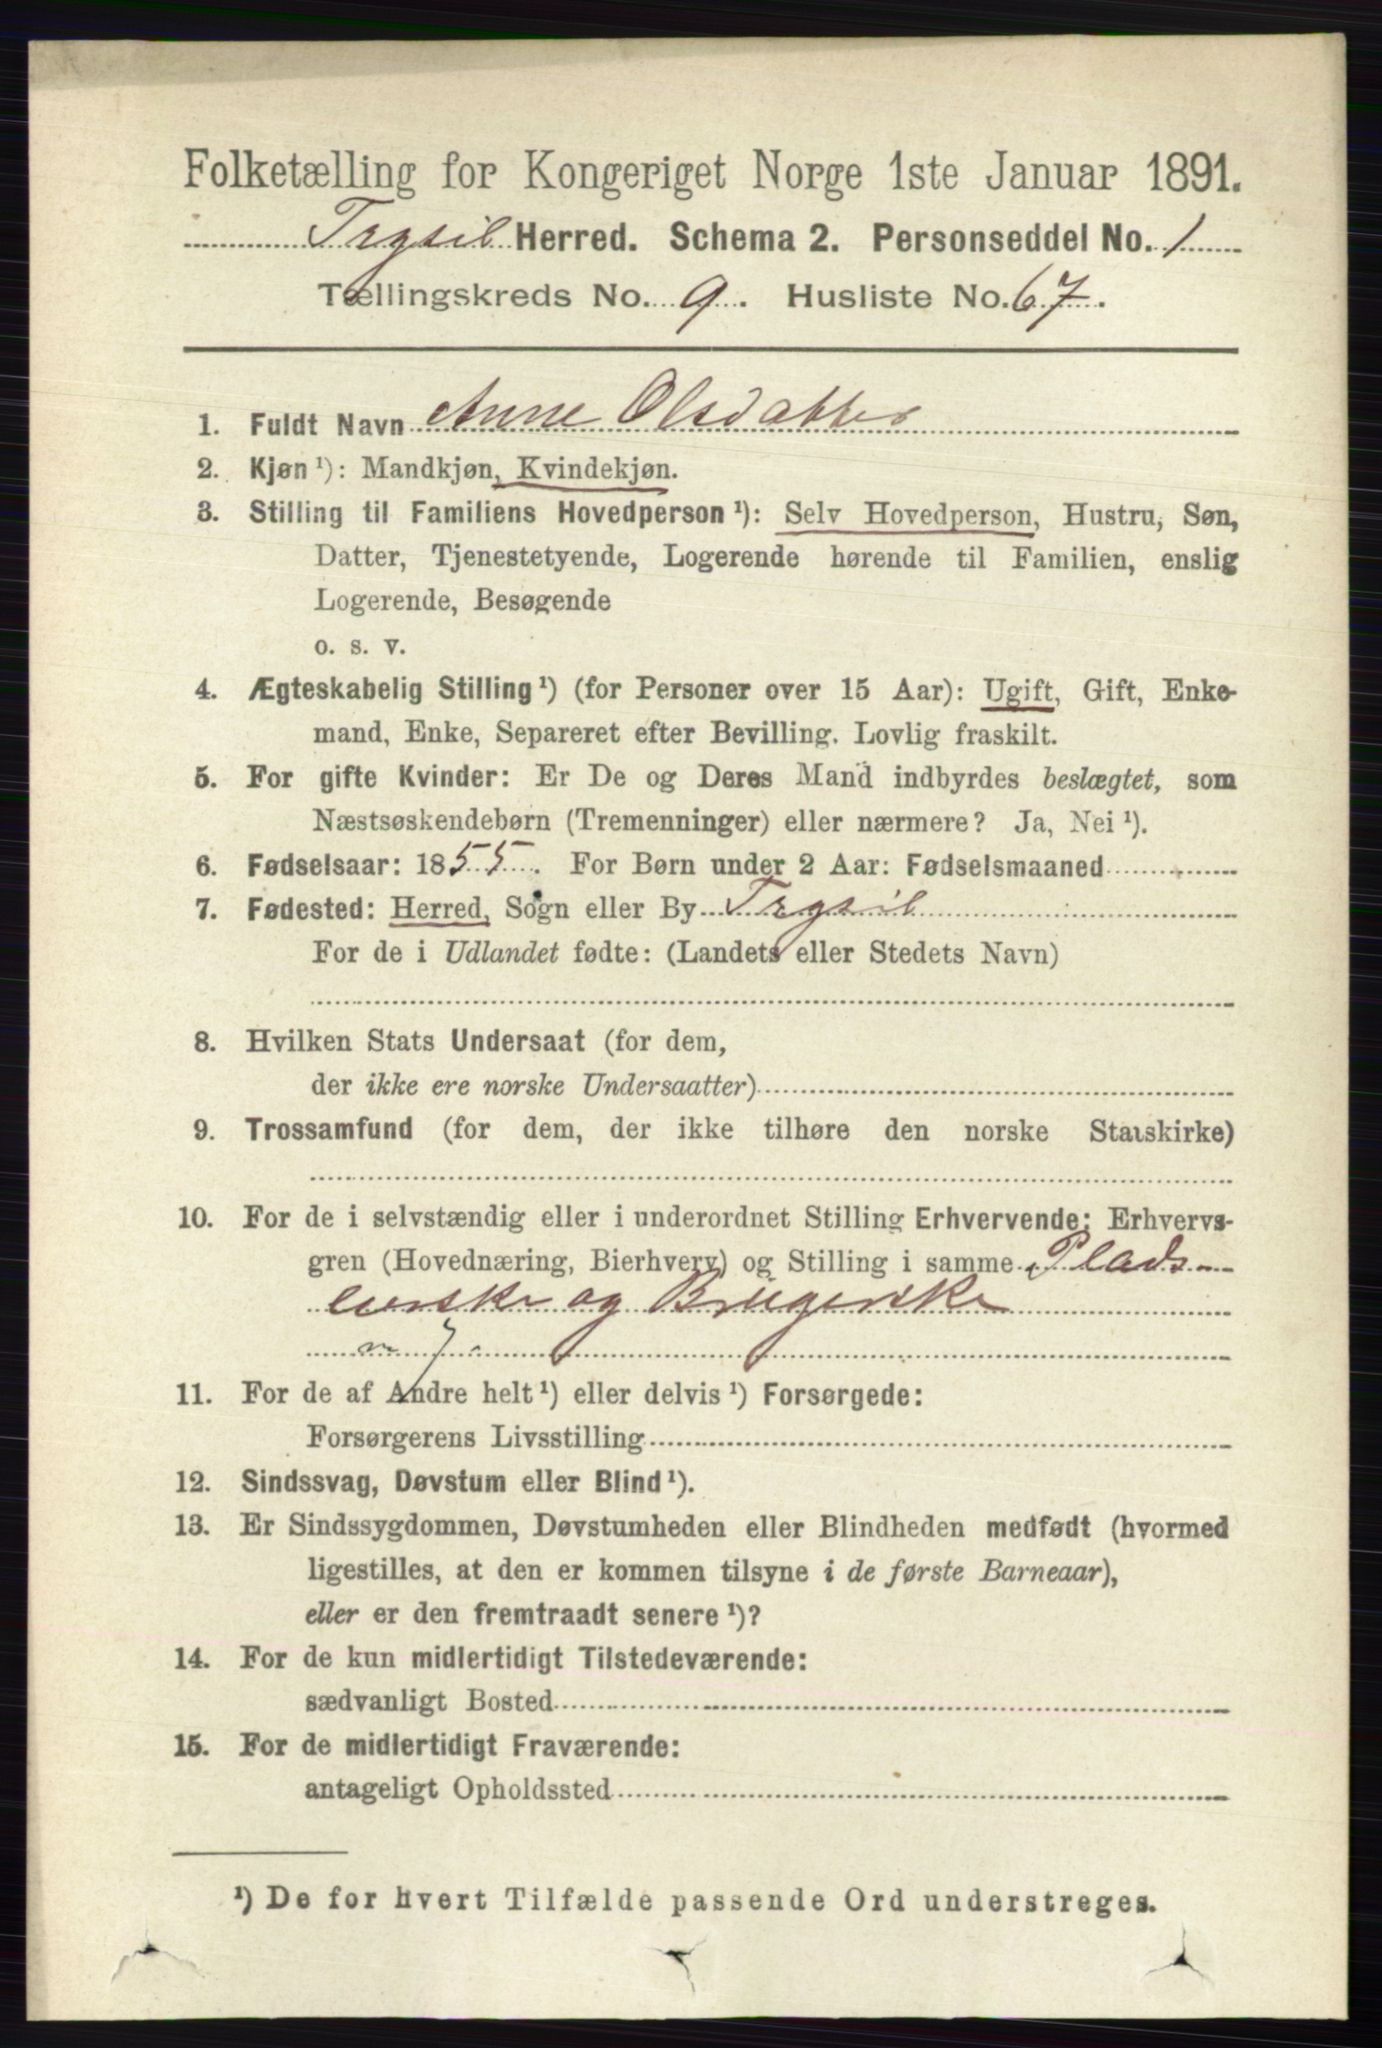 Folketælling for Kongeriget Norge 1ste Januar 1891.
Trysil Herred. Schema 2. Personseddel No. 1
Tællingskreds No. 9. Husliste No. 67.
1. Fuldt Navn Anne Olsdatter
2. Kjøn ¹): Mandkjøn, Kvindekjøn.
3. Stilling til Familiens Hovedperson ¹): Selv Hovedperson, Hustru, Søn,
Datter, Tjenestetyende, Logerende hørende til Familien, enslig
Logerende, Besøgende
o. s. v.
4. Ægteskabelig Stilling ¹) (for Personer over 15 Aar): Ugift, Gift, Enke-
mand, Enke, Separeret efter Bevilling. Lovlig fraskilt.
5. For gifte Kvinder: Er De og Deres Mand indbyrdes beslægtet, som
Næstsøskendebørn (Tremenninger) eller nærmere? Ja, Nei ¹).
6. Fødselsaar: 1855. For Børn under 2 Aar: Fødselsmaaned
7. Fødested: Herred, Sogn eller By Trysil
For de i Udlandet fødte: (Landets eller Stedets Navn)
8. Hvilken Stats Undersaat (for dem,
der ikke ere norske Undersaatter)
9. Trossamfund (for dem, der ikke tilhøre den norske Statskirke)
10. For de i selvstændig eller i underordnet Stilling Erhvervende: Erhvervs-
gren (Hovednæring, Bierhverv) og Stilling i samme Plads-
eierske og Brugerske
m J.
11. For de af Andre helt ¹) eller delvis ¹) Forsørgede:
Forsørgerens Livsstilling
12. Sindssvag, Døvstum eller Blind ¹).
13. Er Sindssygdommen, Døvstumheden eller Blindheden medfødt (hvormed
ligestilles, at den er kommen tilsyne i de første Barneaar),
eller er den fremtraadt senere ¹)?
14. For de kun midlertidigt Tilstedeværende:
sædvanligt Bosted
15. For de midlertidigt Fraværende:
antageligt Opholdssted
¹) De for hvert Tilfælde passende Ord understreges.